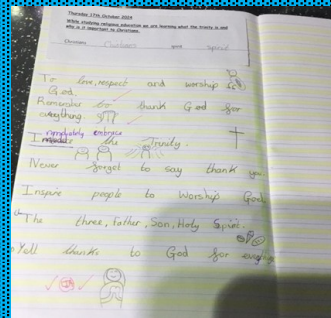 Thursday 17th October 2024
While studying religious education we are learning what the trinity is and
why it is important to Christians.
Christians
To love, respect and worship
God.
Remember to thank God for
everything.
completely embrace
the Trinity.
Never forget to say thank you.
Inspire people to Worship God.
The three, Father, Son, Holy Spirit.
Yell thanks to God for